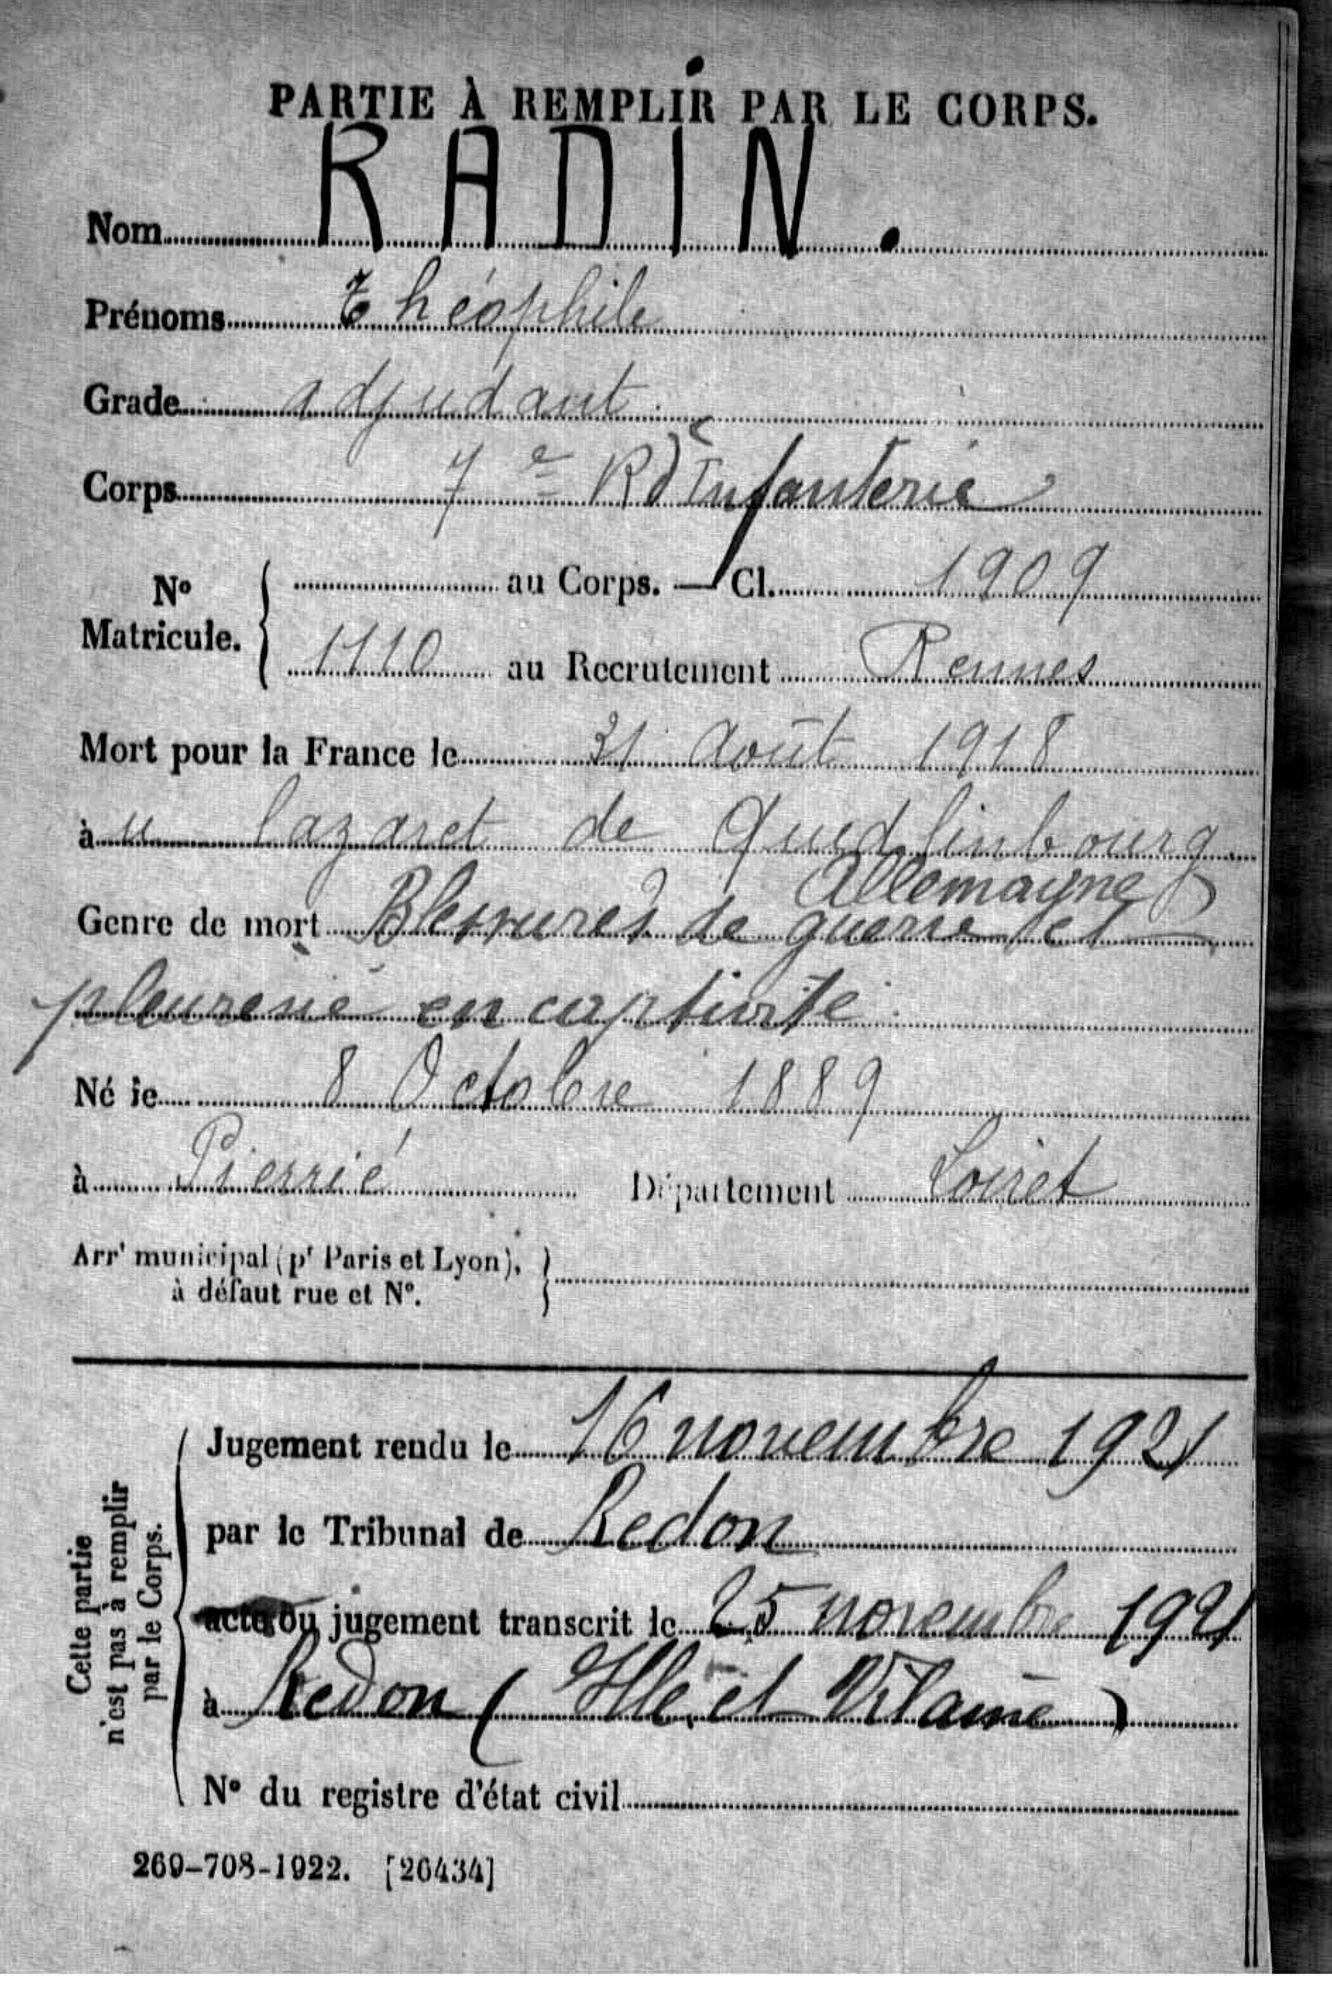 PARTIE À REMPLIR PAR LE CORPS.
Nom RADIN.
Prénoms Théophile
Grade adjudant
Corps 7e R d'Infanterie
No Matricule. { au Corps. — Cl. 1909
1110 au Recrutement Rennes
Mort pour la France le 31 Août 1918
à u lazaret de Quedlinbourg
Allemagne
Genre de mort Blessures de guerre et
pleuresie en captivité
Né le 8 Octobre 1889
à Pierrié Département Loiret
Arrt municipal (pr Paris et Lyon), à défaut rue et No. }
Cette partie n'est pas à remplir par le Corps.
Jugement rendu le 16 novembre 1921
par le Tribunal de Redon
acte ou jugement transcrit le 25 novembre 1921
à Redon (Ille et Vilaine)
No du registre d'état civil
269-708-1922. [26434]